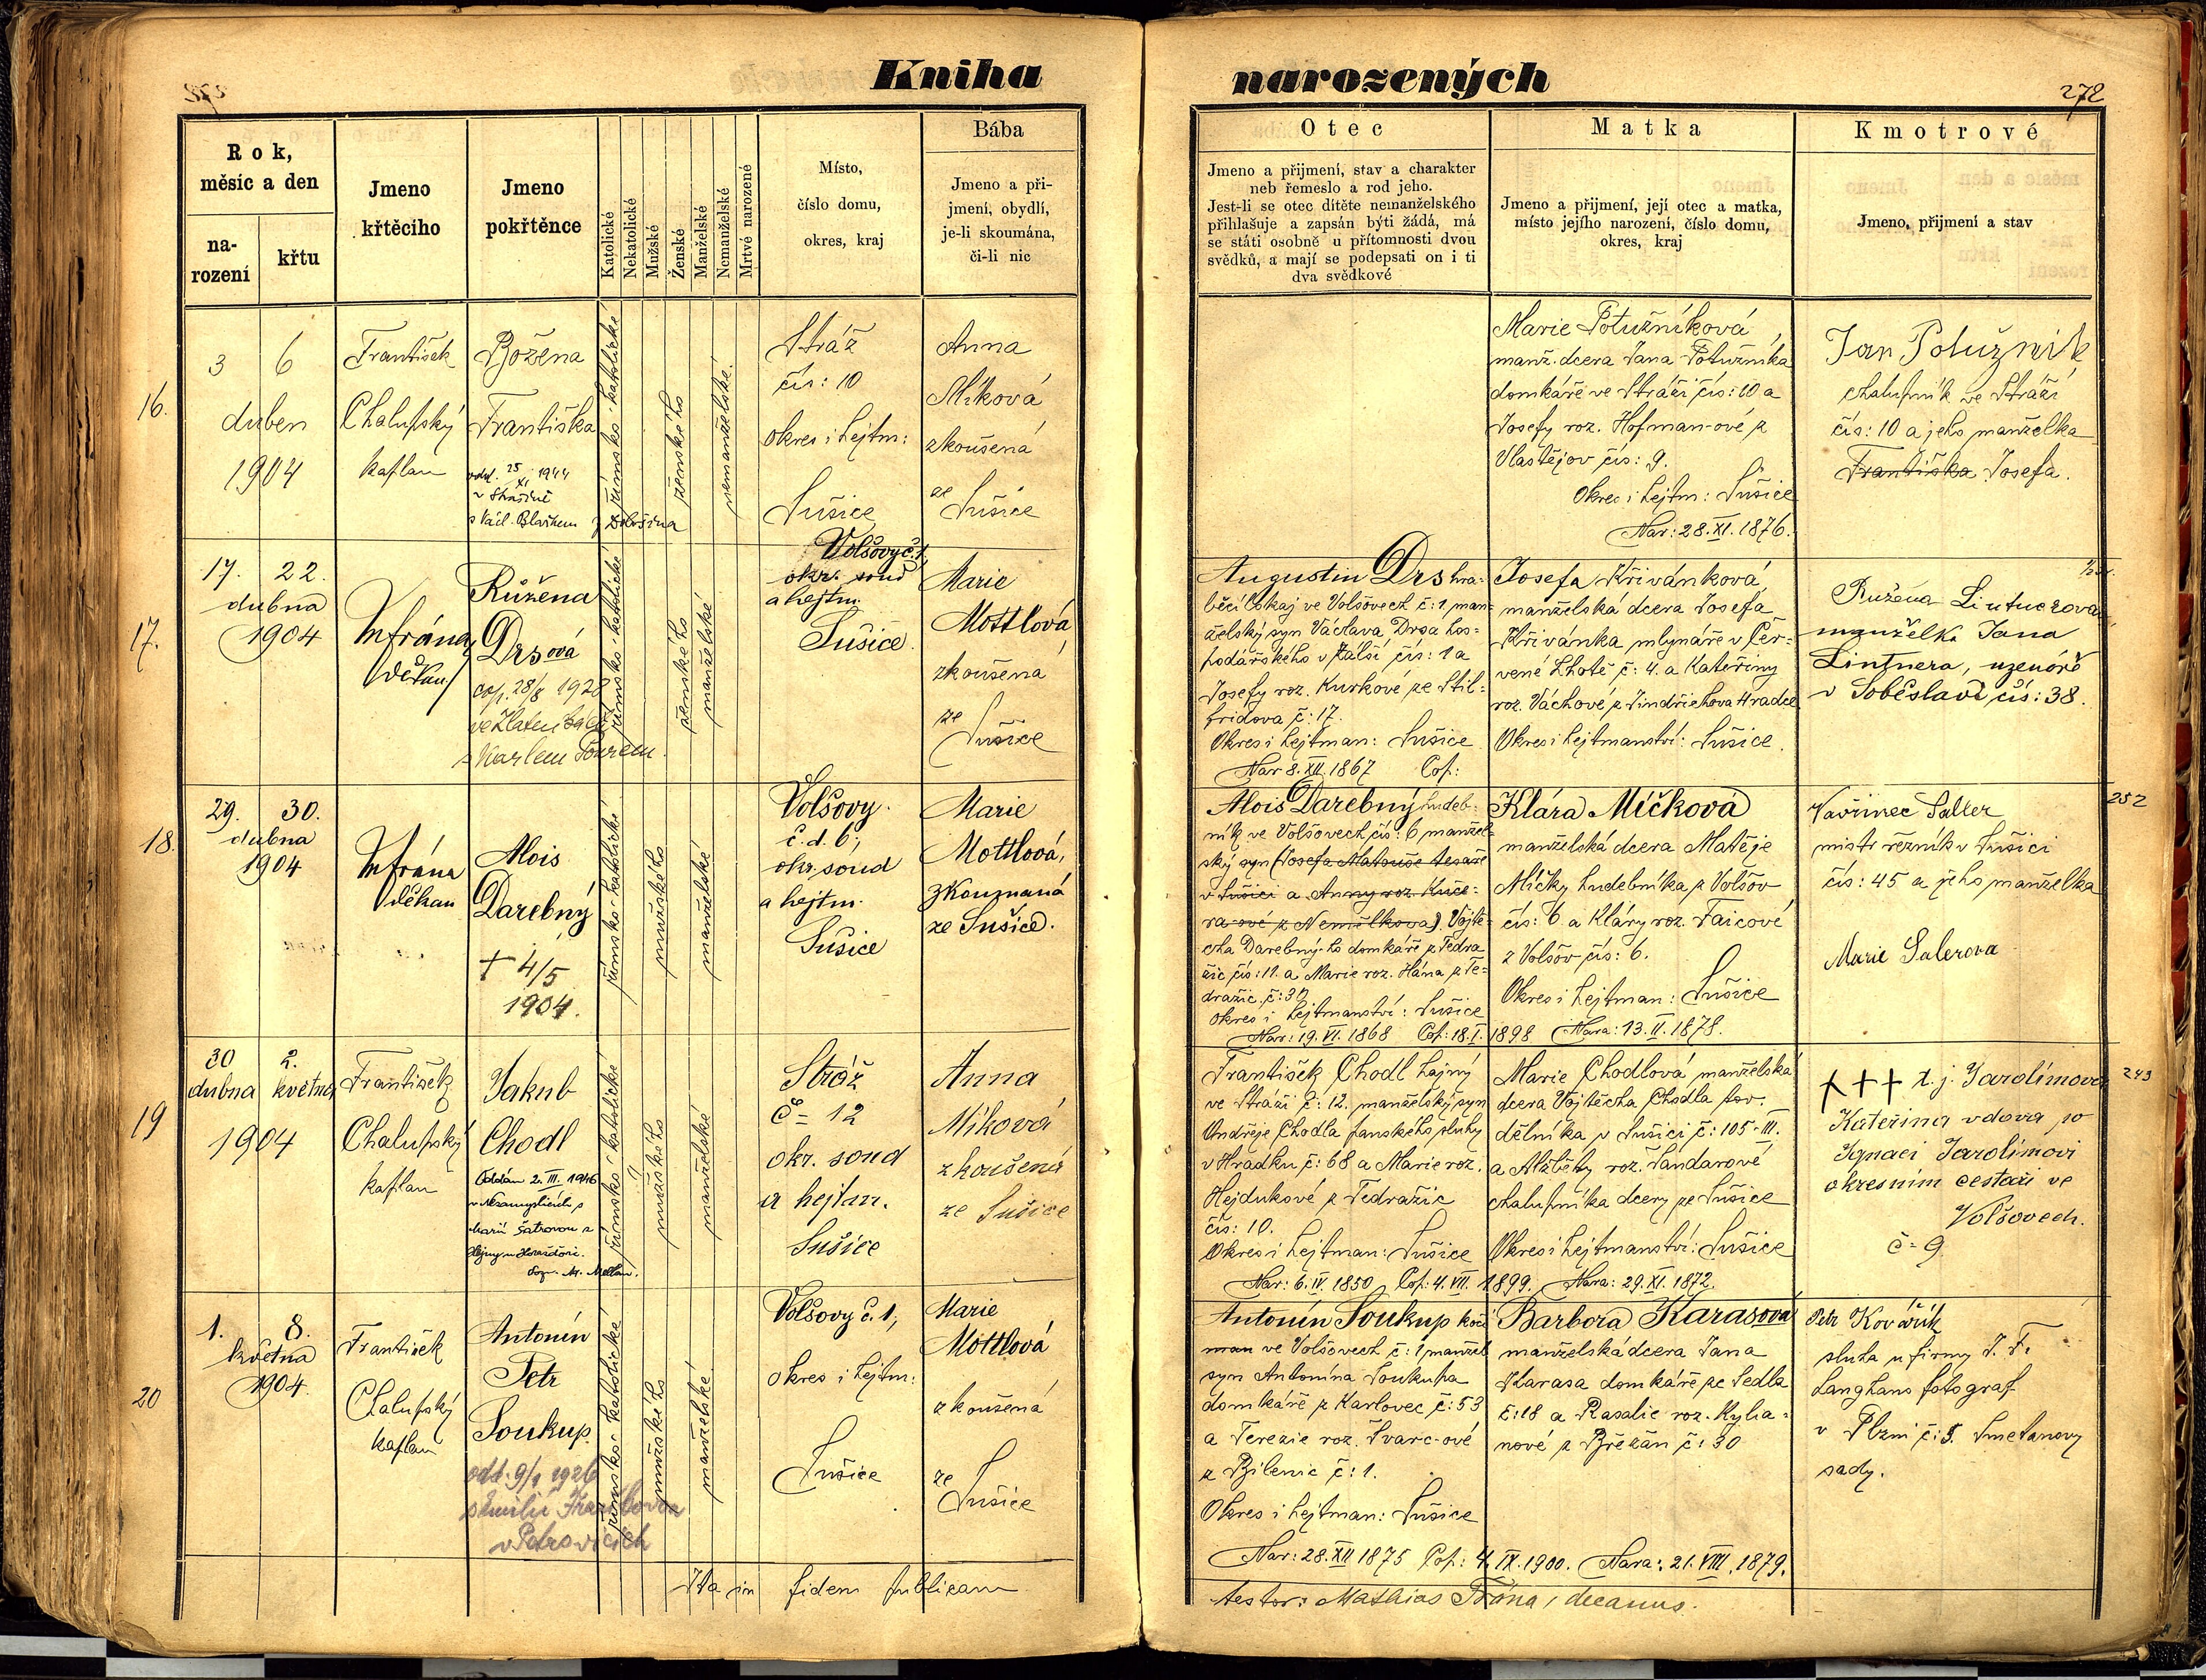 Kniha
narozených
272
Rok,
měsíc a den
na-
rození
křtu
Jmeno
křtěcího
Jmeno
pokřtěnce
Katolické
Nekatolické
Mužské
Ženské
Manželské
Nemanželské
Mrtvé narozené
Místo,
číslo domu,
okres, kraj
Bába
Jmeno a pří-
jmení, obydlí,
je-li skoumána,
či-li nic
Otec
Jmeno a přijmení, stav a charakter
neb řemeslo a rod jeho.
Jest-li se otec dítěte nemanželského
přihlašuje a zapsán býti žádá, má
se státi osobně u přítomnosti dvou
svědků, a mají se podepsati on i ti
dva svědkové
Matka
Jmeno a přijmení, její otec a matka,
místo jejího narození, číslo domu,
okres, kraj
Kmotrové
Jmeno, přijmení a stav
16.
3 6
duben
1904
František
Chalupský
kaplan
Božena
Františka
odd. 25 XI 1944
s Václ. Blažkem
římsko-katolické
ženského
nemanželské
Stráž
čís: 10
okres i hejtm:
Sušice
Anna
Míková
zkoušená
ze
Sušice
Marie Potužníková
manž. dcera Jana Potužníka
domkáře ve Stráži čís: 10 a
Josefy roz. Hofman-ové z
Vlastějov čís: 9.
Okres i hejtm: Sušice
Nar: 28. XI. 1876.
Jan Potužník
chalupník ve Stráži
čís: 10 a jeho manželka
Františka Josefa.
17.
17. 22.
dubna
1904
M Frána
děkan
Růžena
Drsová
cop. 28/8 1928
s Karlem
římsko-katolické
ženského
manželské
Volšovy č. 1.
okr. soud
a hejtm.
Sušice.
Marie
Mottlová
zkoušená
ze
Sušice
Augustin Drs hra-
běcí lokaj ve Volšovech č: 1 man-
želský syn Václava Drsa hos-
podářského v Kalsi čís: 1 a
Josefy roz. Kurkové ze Stil-
fridova č: 17.
Okres i hejtman: Sušice
Nar 8. XII. 1867 Cop:
Josefa Křivánková
manželská dcera Josefa
Křivánka mlynáře v Čer-
vené Lhotě č: 4. a Kateřiny
roz. Váchové z Jindřichova Hradce
Okres i hejtmanství: Sušice.
Růžena Lintnerová
manželka Jana
Lintnera, uzenáře
v Soběslavi čís: 38.
18.
29. 30.
dubna
1904
M Frána
děkan
Alois
Darebný
+ 4/5
1904.
římsko-katolické
mužského
manželské
Volšovy
č. d. 6;
okr. soud
a hejtm.
Sušice
Marie
Mottlová,
zkoumaná
ze Sušice.
Alois Darebný hudeb-
ník ve Volšovech čís: 6 manžel-
ský syn (Josefa Matouše tesaře
v Sušici a Anny roz. Kuče-
ra-ové z Nemilkova) Vojtě-
cha Darebný-ho domkáře z Tedra-
žic čís: 11. a Marie roz. Hána z Te-
dražic č: 37
okres i hejtmanství: Sušice
Nar: 19. VI. 1868 Cop: 18. I. 1898
Klára Míčková
manželská dcera Matěje
Míčky hudebníka z Volšov
čís: 6 a Kláry roz. Faicové
z Volšov čís: 6.
Okres i hejtman: Sušice
Nara: 13. II. 1878.
Vavřinec Saller
mistr řezník v Sušici
čís: 45 a jeho manželka
Marie Salerova
252
19
30 2.
dubna května
1904
František
Chalupský
kaplan
Jakub
Chodl
Oddán 2. III. 1946
v Nezamyslicích s
Marií Šatrovou z
římsko-katolické
mužského
manželské
Stráž
č= 12
okr. soud
a hejtm.
Sušice
Anna
Míková
zkoušená
ze Sušice
František Chodl hajný
ve Stráži č: 12. manželský syn
Ondřeje Chodla panského sluhy
v Hrádku č: 68 a Marie roz.
Hejdukové z Tedražic
čís: 10.
Okres i hejtman: Sušice
Nar: 6. IV. 1850 Cop: 4. VII. 1899.
Marie Chodlová manželská
dcera Vojtěcha Chodla pov.
dělníka v Sušici č: 105-III.
a Alžběty roz. Šandarové
chalupníka dcery ze Sušice
Okres i hejtmanství: Sušice
Nara: 29. XI. 1872.
+++ t. j. Jarolímova
Kateřina vdova po
Ignaci Jarolímovi
okresním cestáři ve
Volšovech.
č= 9
243
20
1. 8.
května
1904.
František
Chalupský
kaplan
Antonín
Petr
Soukup.
odd. 9/1 1926
v Petrovicích
římsko-katolické
mužského
manželské
Volšovy č. 1,
okres i hejtm:
Sušice
Marie
Mottlová
zkoušená
ze
Sušice
Antonín Soukup kočí
man ve Volšovech č: 1 manžel
syn Antonína Soukupa
domkáře z Karlovec č: 53
a Terezie roz. Švarc-ové
z Bilenic č: 1.
Okres i hejtman: Sušice
Nar: 28. XII 1875 Cop: 4. IX. 1900.
Barbora Karasová
manželská dcera Jana
Karasa domkáře ze Sedla
č: 18 a Rosalie roz. Kylia-
nové z Břežan č: 30
Nara: 21. VIII. 1879.
Petr Kovářík
sluha u firmy J. F.
Langhans fotograf
v Plzni č: 5. Smetanovy
sady.
Ita in fidem publicam
testor: Mathias Frána, decanus.